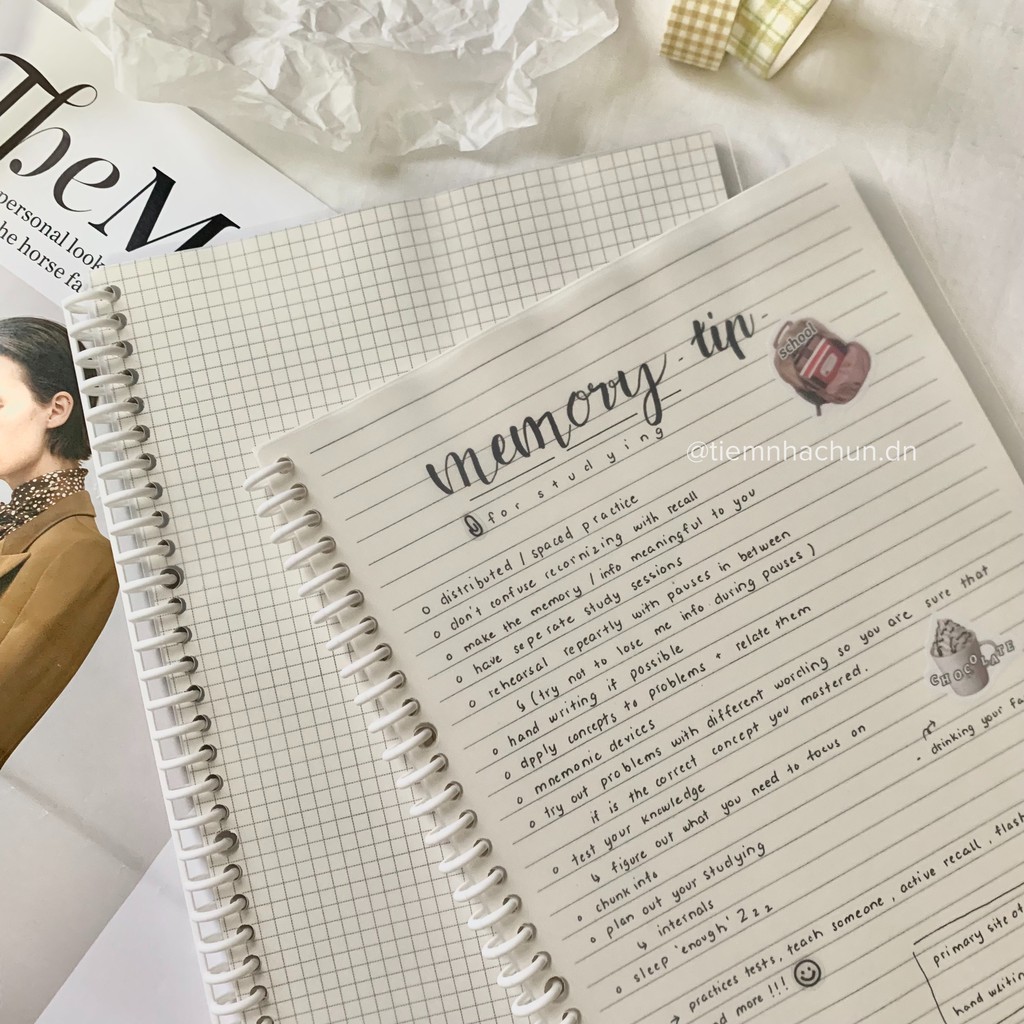 The M
personal look
he horse fa
memory tip
for studying
school
@tiemnhachun.dn
o distributed / spaced practice
o don't confuse recornizing with recall
o make the memory / info meaningful to you
o have seperate study sessions
o rehearsal repeartly with pauses in between
↳ (try not to lose me info during pauses)
o hand writing if possible
o apply concepts to problems + relate them
o mnemonic devices
o try out problems with different wording so you are sure that
if is the correct concept you mastered.
o test your knowledge
↳ figure out what you need to focus on
o chunk info
o plan out your studying
↳ internals
o sleep 'enough' 2 2 2
→ practices tests, teach someone, active recall, flash
nd more !!!
CHOCOLATE
- drinking your fa
primary site of
hand writing